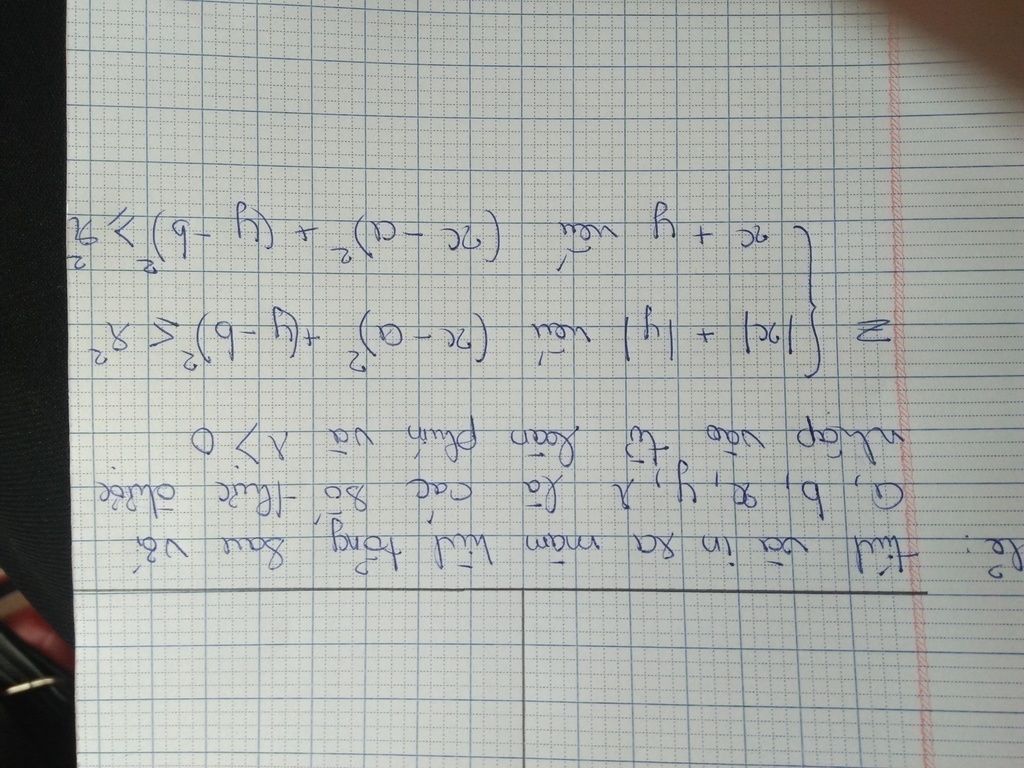 lẻ: tính và in ra màn hình tổng sau với
a, b, x, y, r là các số thực được
nhập vào từ bàn phím và r > 0
z { |x| + |y| nếu (x - a)² + (y - b)² ≤ r²
x + y nếu (x - a)² + (y - b)² > r²